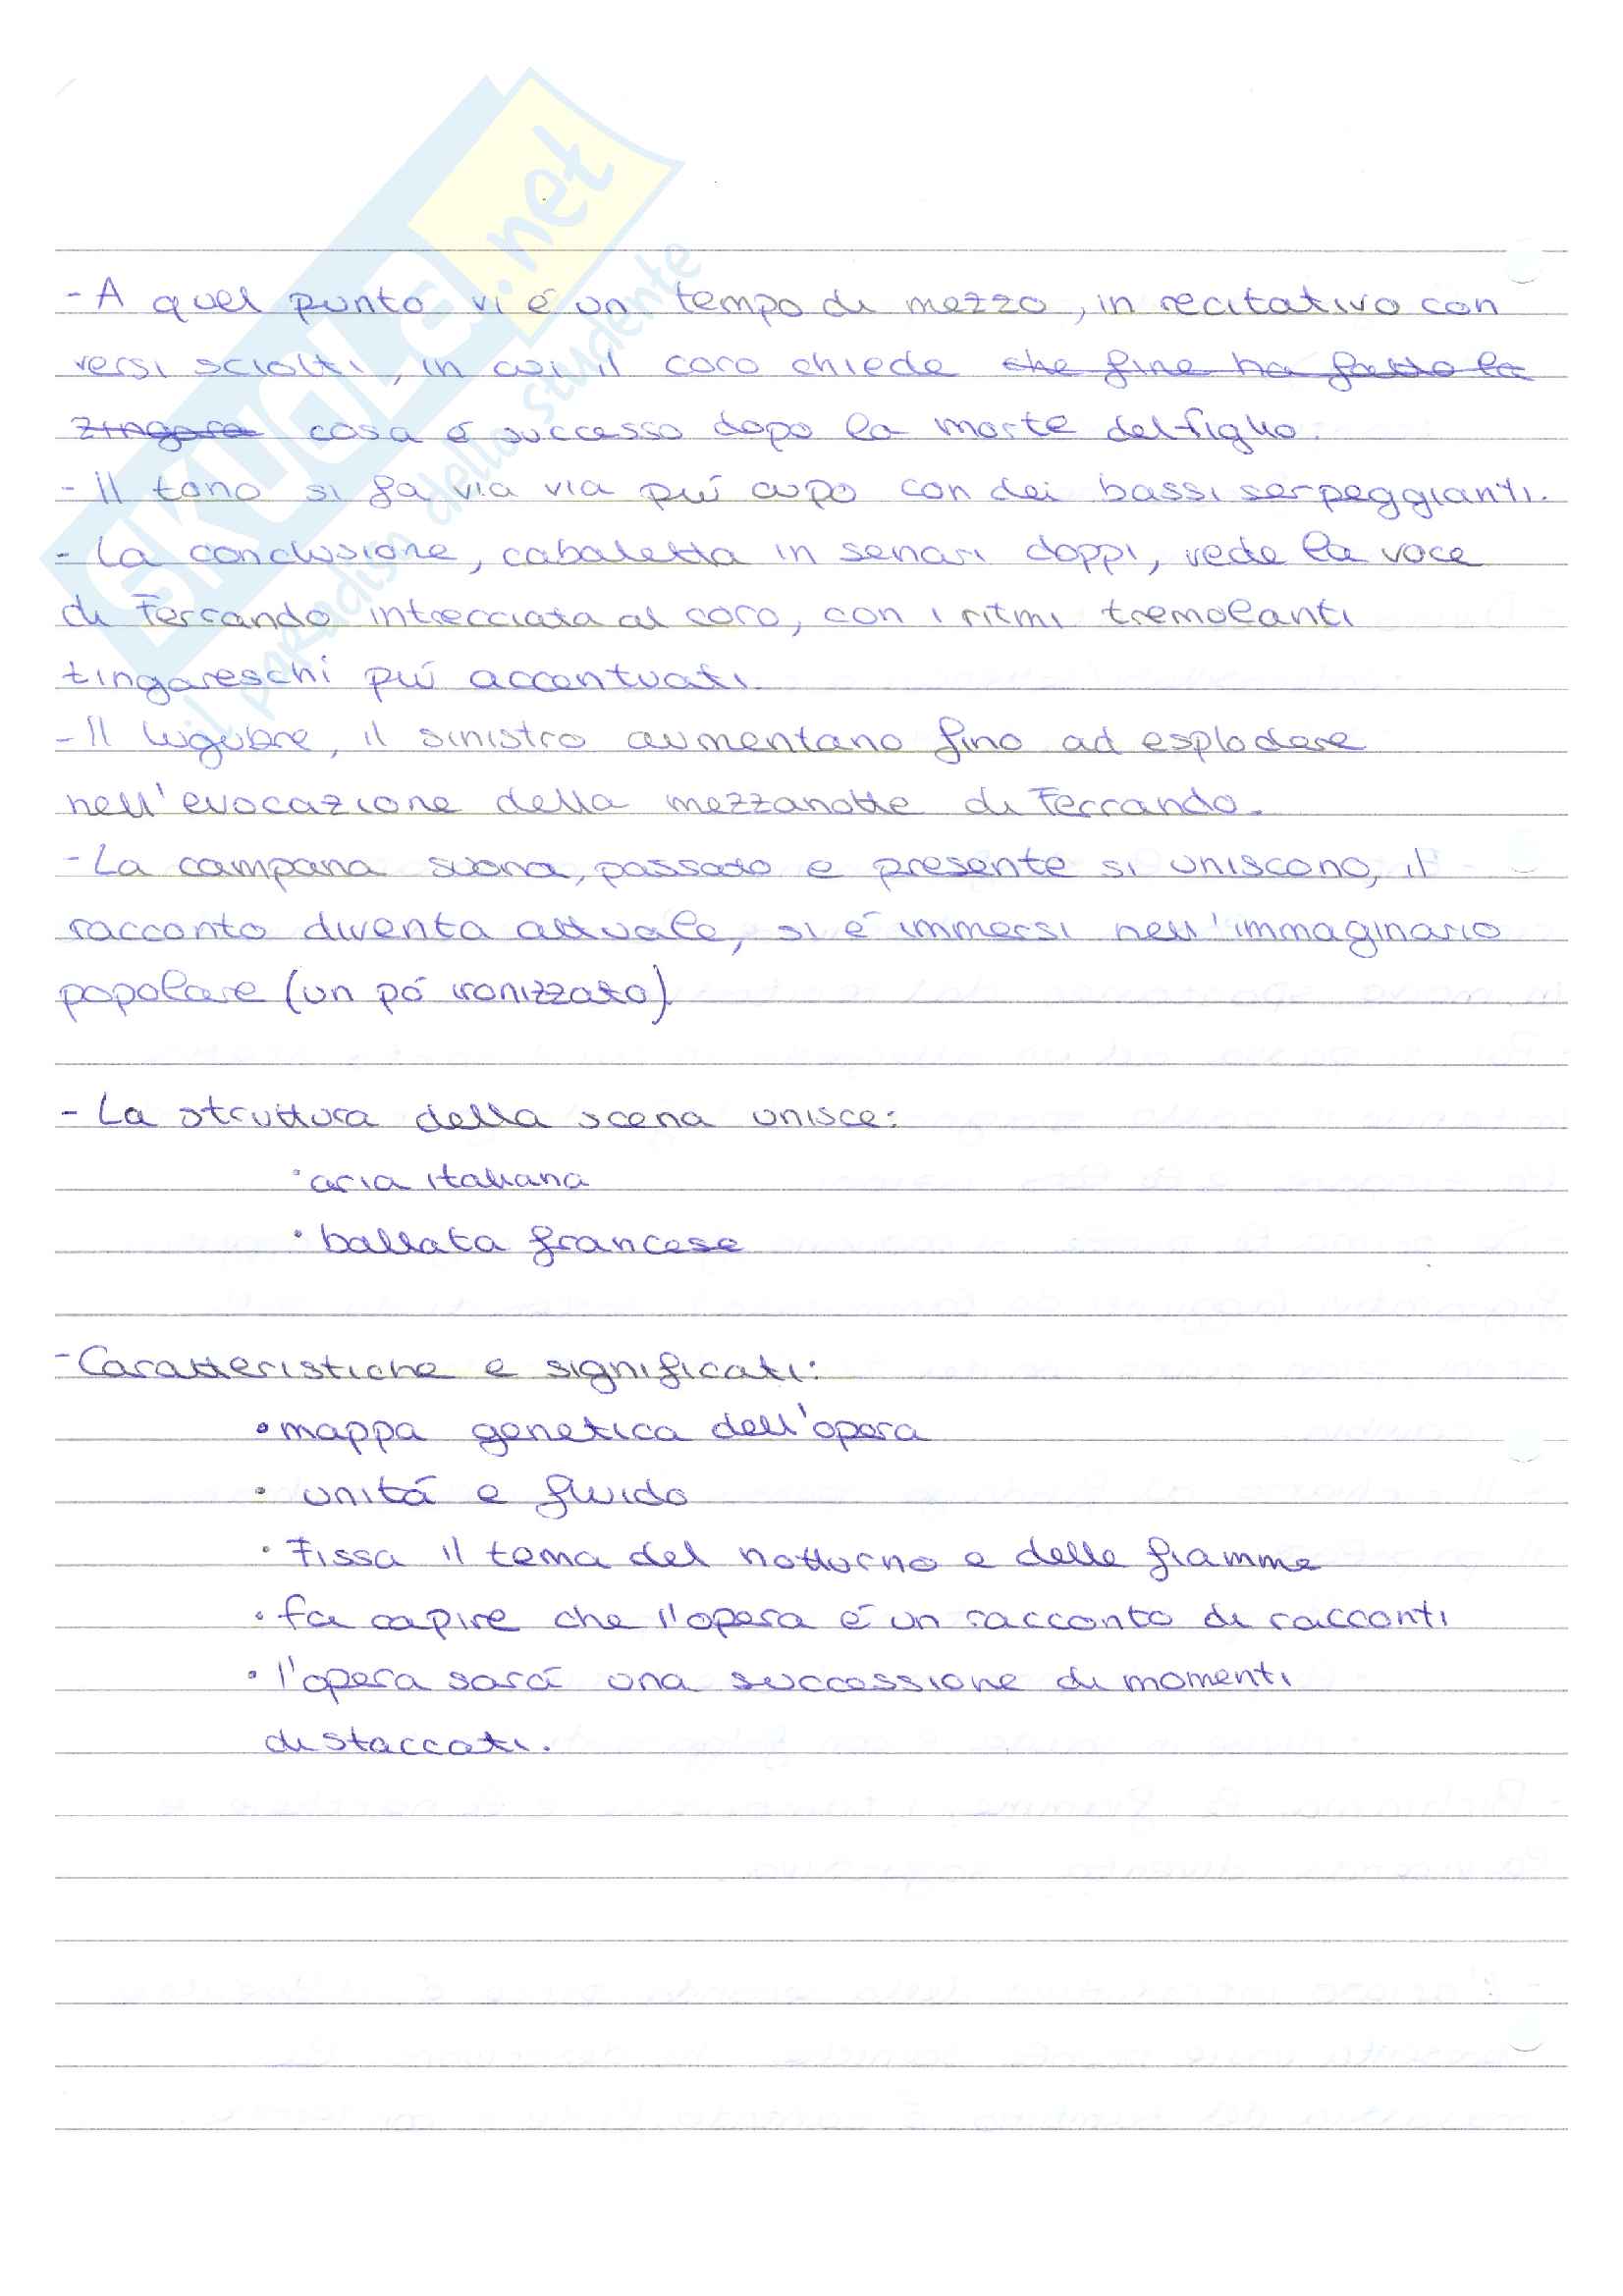 SKUOLA.net
il paradiso dello studente
- A quel punto vi é un tempo di mezzo, in recitativo con
versi sciolti, in cui il coro chiede ~~che fine ha fatto la~~
~~zingara~~ cosa é successo dopo la morte del figlio.
- Il tono si fa via via piú cupo con dei bassi serpeggianti.
- La conclusione, cabaletta in senari doppi, vede la voce
di Ferrando intrecciata al coro, con i ritmi tremolanti
zingareschi piú accentuati.
- Il lugubre, il sinistro aumentano fino ad esplodere
nell'evocazione della mezzanotte di Ferrando.
- La campana suona, passato e presente si uniscono, il
racconto diventa attuale, si é immersi nell'immaginario
popolare (un pó ironizzato)
- La struttura della scena unisce:
• aria italiana
• ballata francese
- Caratteristiche e significati:
• mappa genetica dell'opera
• unitá e fluido
• Fissa il tema del notturno e delle fiamme
• fa capire che l'opera é un racconto di racconti
• l'opera sará una successione di momenti
distaccati.